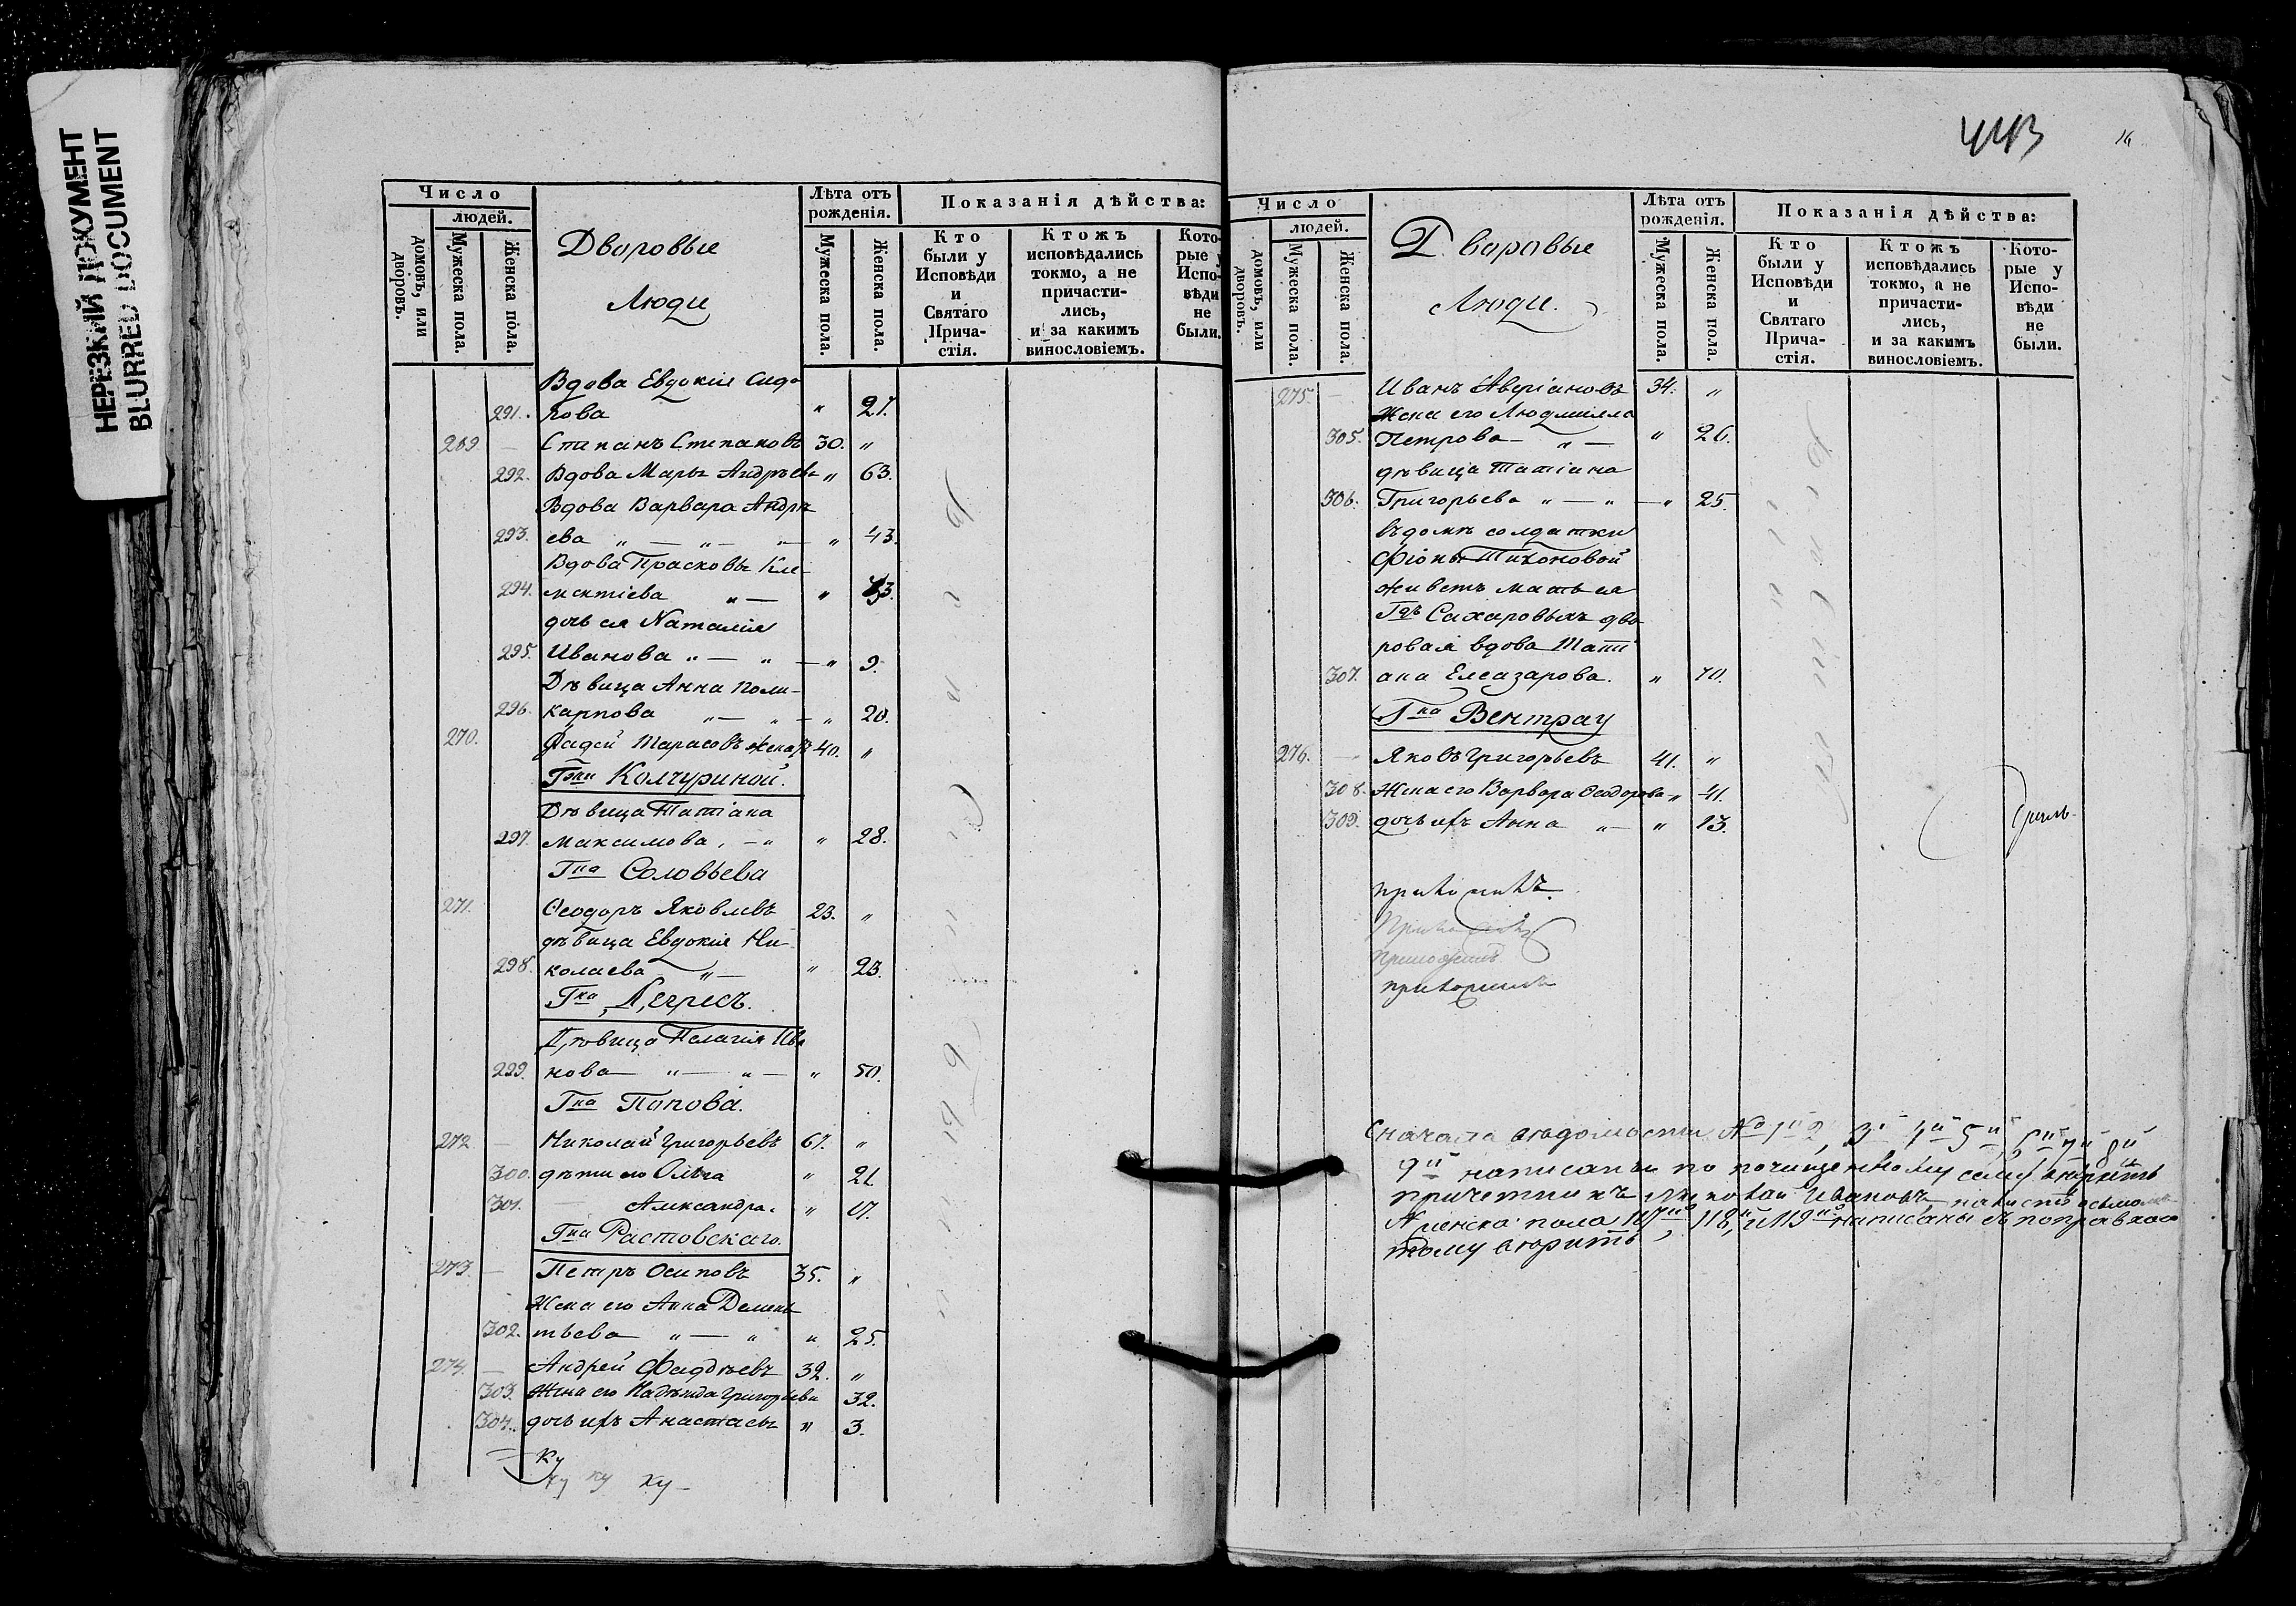 НЕРЕЗКИЙ ДОКУМЕНТ
BLURRED DOCUMENT
Число
людей.
домовъ, или дворовъ.
Мужеска пола.
Женска пола.
Дворовые
Люди
Лѣта отъ рожденія.
Мужеска пола.
Женска пола.
Показанія дѣйства:
Кто были у Исповѣди и Святаго Прича-стія.
Ктожъ исповѣдались токмо, а не причасти-лись, и за какимъ винословіемъ.
Кото-рые у Испо-вѣди не были.
Вдова Евдокія Сидо
291. рова " 27.
269 — Степанъ Степановъ 30. "
292. Вдова Марья Андрѣева " 63.
Вдова Варвара Андрѣ
293. ева " — " — " — " 43.
Вдова Прасковья Кле-
294. ментіева " — "
дочь ея Наталія
295. Иванова " — " — " 9.
Дѣвица Анна Поли-
296. карпова " — " — " 20.
270. Фадей Тарасовъ 40. "
Гжи Колчуриной.
Дѣвица Татіана
297. Максимова, — " " 28.
Гна Соловьева
271. Ѳеодоръ Яковлевъ 23. "
дѣвица Евдокія Ни-
298. колаева " — " 23.
Гна Легресъ.
Дѣвица Пелагія Ива
299. нова " — " — " 50.
Гна Попова.
272 — Николай Григорьевъ 67. "
300. дѣти его Ольга " 21
301. Александра. " 17.
Гна Растовскаго.
273. — Петръ Осиповъ 35. "
Жена его Анна Демень
302. тьева " — " " 25.
274. — Андрей Фадѣевъ 32. "
303. Жена его Надежда Григорьева 32.
304. дочь ихъ Анастасья " 3.
Ку
ку ку ку
443
Число
людей.
домовъ, или дворовъ.
Мужеска пола.
Женска пола.
Дворовые
Люди.
Лѣта отъ рожденія.
Мужеска пола.
Женска пола.
Показанія дѣйства:
Кто были у Исповѣди и Святаго Прича-стія.
Ктожъ исповѣдались токмо, а не причасти-лись, и за какимъ винословіемъ.
Кото-рые у Испо-вѣди не были.
275 — Иванъ Аверіановъ 34. "
Жена его Людмилла
305. Петрова — " — " 26.
дѣвица Татіана
306. Григорьева " — " — " 25.
въ домѣ солдатки
Фіоны Тихоновой
живетъ мать ея
Гдъ Сахаровыхъ дво
ровая вдова Тати
307. ана Елеазарова. " 70.
Гна Вентрау
276. — Яковъ Григорьевъ 41. "
308. Жена его Варвара Ѳеодорова " 41.
309. дочь ихъ Анна " — " 13.
Сначала вѣдомости № 1й 2, 3й 4й 5й, 6й 7й 8й
9й написаны по почищенному сему вѣрить